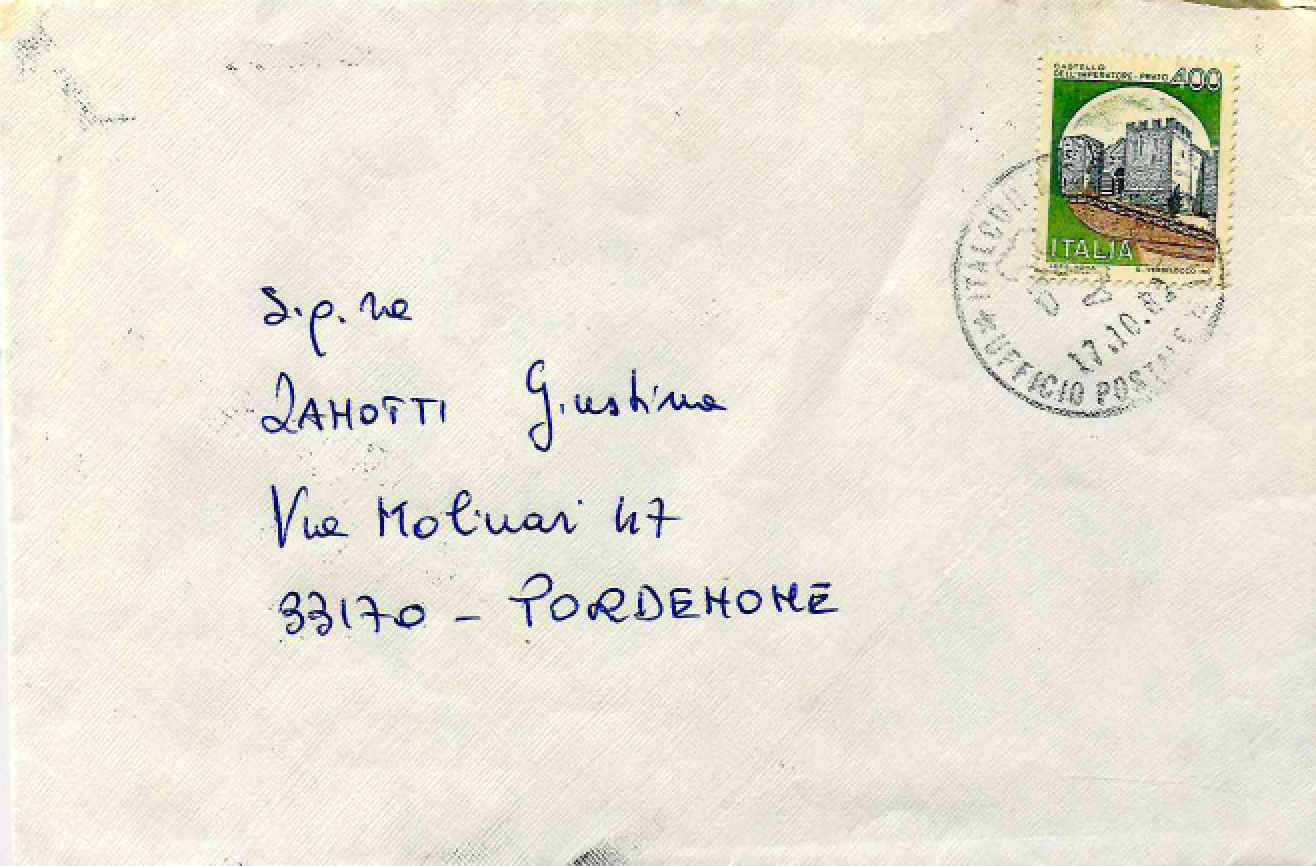 CASTELLO
DELL'IMPERATORE - PRATO 400
ITALIA
ITALCON
17.10.82
UFFICIO POSTALE
S.p. na
ZANOTTI Giustina
Via Molinari 47
33170 - PORDENONE